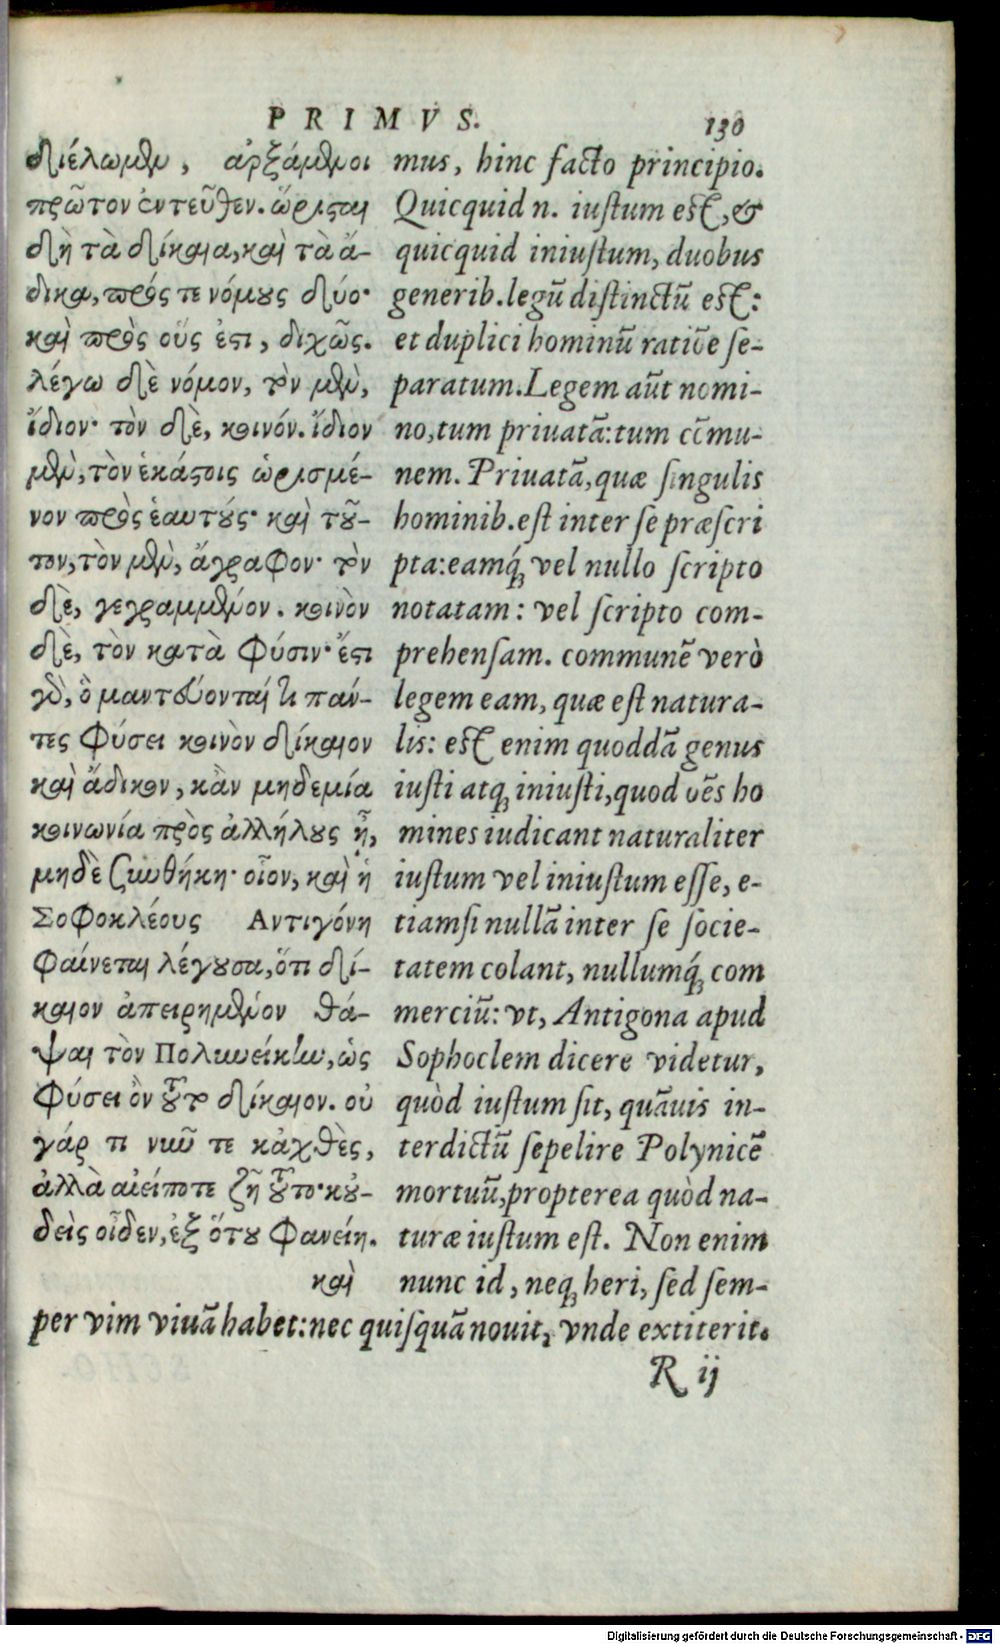 PRIMVS. 130
διέλωμεν, ἀρξάμενοι
πρῶτον ἐντεῦθεν. ὥρισται
δὴ τὰ δίκαια, καὶ τὰ ἄ-
δικα, πρός τε νόμους δύο·
καὶ πρὸς οὕς ἐστι, διχῶς.
λέγω δὲ νόμον, τὸν μὲν,
ἴδιον· τὸν δὲ, κοινόν. ἴδιον
μὲν, τὸν ἑκάστοις ὡρισμέ-
νον πρὸς ἑαυτούς· καὶ τοῦ-
τον, τὸν μὲν, ἄγραφον· τὸν
δὲ, γεγραμμένον. κοινὸν
δὲ, τὸν κατὰ φύσιν· ἔστι
γὰρ, ὃ μαντεύονταί τι πάν-
τες φύσει κοινὸν δίκαιον
καὶ ἄδικον, κἂν μηδεμία
κοινωνία πρὸς ἀλλήλους ᾖ,
μηδὲ συνθήκη· οἷον, καὶ ἡ
Σοφοκλέους Αντιγόνη
φαίνεται λέγουσα, ὅτι δί-
καιον ἀπειρημένον θά-
ψαι τὸν Πολυνείκην, ὡς
φύσει ὂν τοῦτο δίκαιον. οὐ
γάρ τι νῦν τε κἀχθὲς,
ἀλλὰ αἰείποτε ζῇ τοῦτο· κοὐ-
δεὶς οἶδεν, ἐξ ὅτου φανείη.
καὶ
mus, hinc facto principio.
Quicquid n. iustum est, &
quicquid iniustum, duobus
generib. legū distinctū est:
et duplici hominū ratiōe se-
paratum. Legem aūt nomi-
no, tum priuatā: tum cōmu-
nem. Priuatā, quæ singulis
hominib. est inter se præscri
pta: eamq́; vel nullo scripto
notatam: vel scripto com-
prehensam. communē verò
legem eam, quæ est natura-
lis: est enim quoddā genus
iusti atq; iniusti, quod oēs ho
mines iudicant naturaliter
iustum vel iniustum esse, e-
tiamsi nullā inter se socie-
tatem colant, nullumq́; com
merciū: vt, Antigona apud
Sophoclem dicere videtur,
quòd iustum sit, quāuis in-
terdictū sepelire Polynicē
mortuū, propterea quòd na-
turæ iustum est. Non enim
nunc id, neq; heri, sed sem-
per vim viuā habet: nec quisquā nouit, vnde extiterit.
R ij
Digitalisierung gefördert durch die Deutsche Forschungsgemeinschaft - DFG